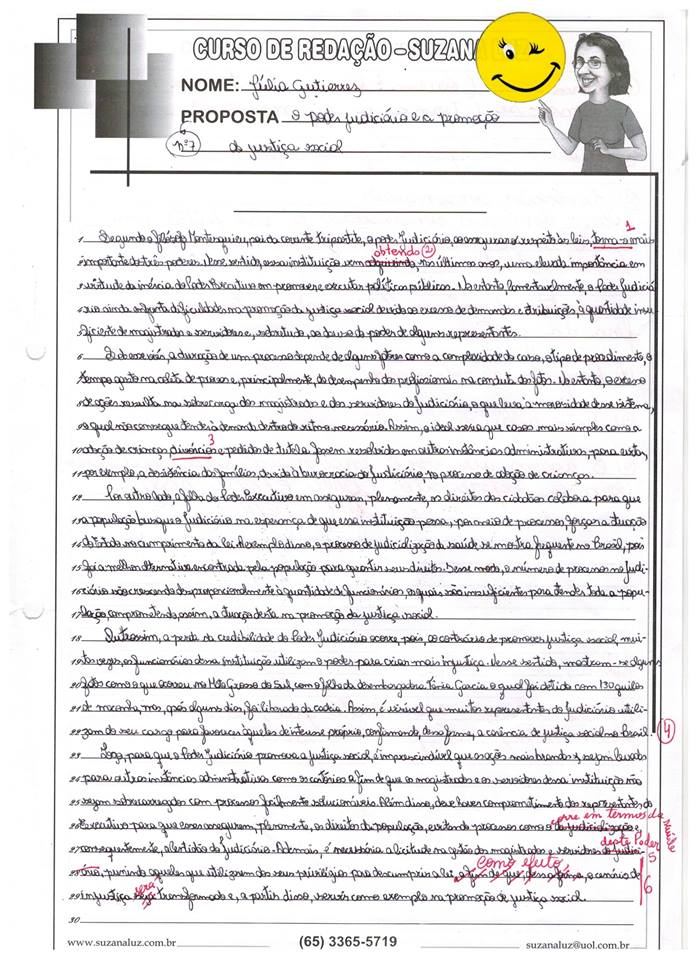 CURSO DE REDAÇÃO - SUZANA LU
NOME: Júlia Gutierrez
PROPOSTA o poder judiciário e a promoção
nº 7 da justiça social
1
1 Segundo o filósofo Montesquieu, pai da corrente tripartite, o poder Judiciário, ao assegurar o respeito às leis, torna-o mais
obtendo 2
importante dos três poderes. Nesse sentido, essa instituição vem adquirindo, nos últimos anos, uma elevada importância em
virtude da inércia do Poder Executivo em promover e executar políticas públicas. No entanto, lamentavelmente, o Poder Judiciá-
rio ainda enfrenta dificuldades na promoção da justiça social devido ao excesso de demandas e atribuições, à quantidade insu-
ficiente de magistrados e servidores e, sobretudo, ao abuso do poder de alguns representantes.
6 a duração de um processo depende de alguns fatores como a complexidade do caso, o tipo de procedimento, o
tempo gasto na coleta de provas e, principalmente, do desempenho dos profissionais na conduta dos fatos. No entanto, o excesso
de ações resulta na sobrecarga dos magistrados e dos servidores do Judiciário, o que leva à morosidade desse sistema,
o qual não consegue atender à demanda dentro do ritmo necessário. Assim, o ideal seria que casos mais simples como a
3
10 adoção de crianças, divórcios e pedidos de tutela fossem resolvidos em outras instâncias administrativas, para evitar,
por exemplo, a desistência das famílias, devido à burocracia do Judiciário, no processo de adoção de crianças.
12 Por outro lado, a falha do Poder Executivo em assegurar, plenamente, os direitos dos cidadãos colabora para que
a população busque o Judiciário na esperança de que essa instituição possa, por meio de processos, forçar a atuação
do Estado no cumprimento da lei. A exemplo disso, o processo de judicialização da saúde se mostra frequente no Brasil, pois
foi a melhor alternativa encontrada pela população para garantir seus direitos. Desse modo, o número de processos no Judi-
ciário vão crescendo desproporcionalmente à quantidade de funcionários, os quais são insuficientes para atender toda a popu-
lação, comprometendo, assim, a atuação desta na promoção da justiça social.
18 Outrossim, a perda da credibilidade do Poder Judiciário ocorre, pois, ao contrário de promover justiça social, mui-
tas vezes, os funcionários dessa instituição utilizam o poder para criar mais injustiça. Nesse sentido, mostram-se alguns
fatos como o que ocorreu no Mato Grosso do Sul, com o filho da desembargadora Tânia Garcia o qual foi detido com 130 quilos
de maconha, mas, após alguns dias, foi liberado da cadeia. Assim, é visível que muitos representantes do Judiciário utili-
zam do seu cargo para favorecer aqueles de interesse próprio, confirmando, dessa forma, a carência de justiça social no Brasil.
4
23 Logo, para que o Poder Judiciário promova a justiça social, é imprescindível que as ações mais brandas sejam levadas
para outras instâncias administrativas como os cartórios a fim de que os magistrados e os servidores dessa instituição não
sejam sobrecarregados com processos facilmente solucionáveis. Além disso, deve haver comprometimento dos representantes do
Executivo para que esses assegurem, plenamente, os direitos da população, evitando processos como o da judicialização e,
em termos da saúde
deste Poder
consequentemente, a lentidão do Judiciário. Ademais, é necessária a licitude na gestão dos magistrados e servidores do Judici-
5
como efeito
ário, punindo aqueles que utilizarem dos seus privilégios para descumprir a lei, a fim de que, dessa forma, o cenário de
6
será
29 injustiça seja transformado e, a partir disso, servir como exemplo na promoção de justiça social.
30
www.suzanaluz.com.br (65) 3365-5719 suzanaluz@uol.com.br